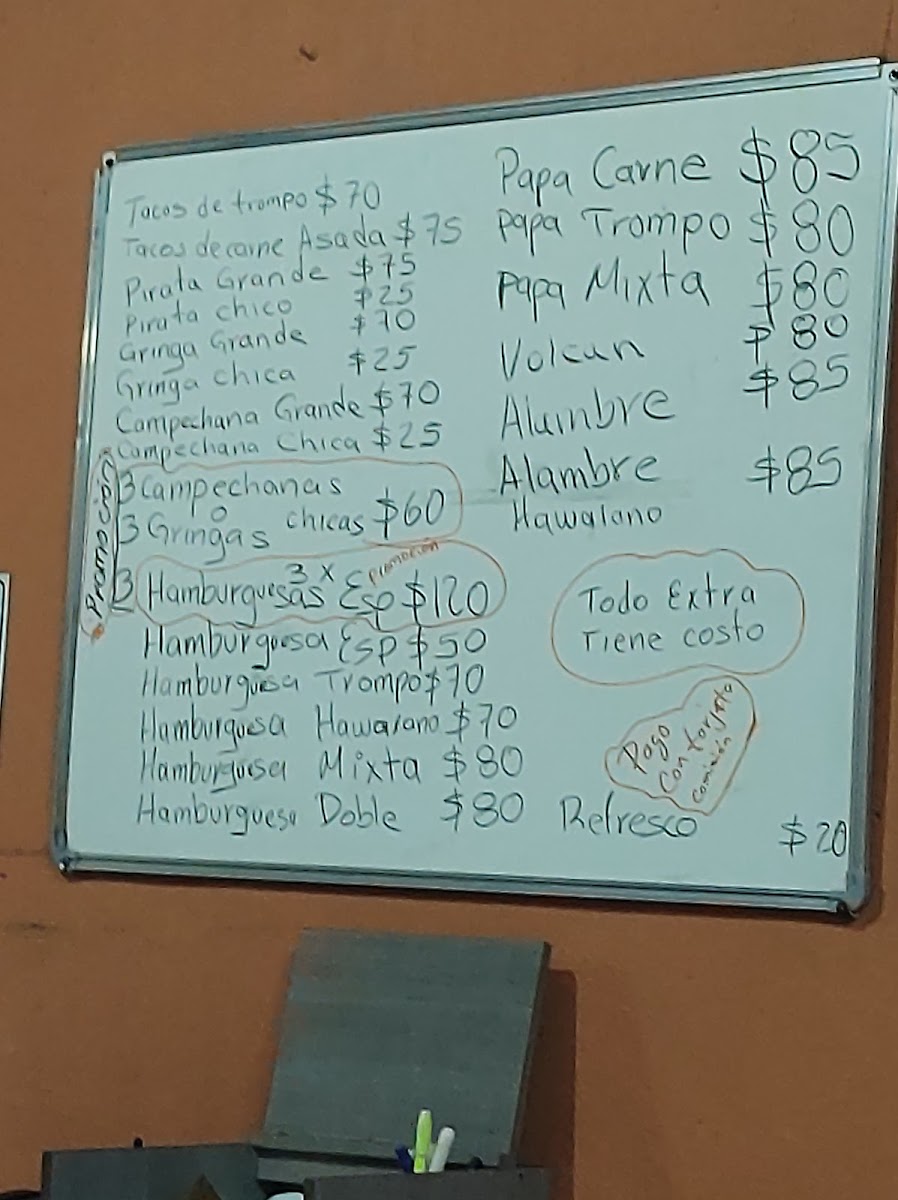 Tacos de trompo $70
Tacos de carne Asada $75
Pirata Grande $75
Pirata chico $25
Gringa Grande $70
Gringa chica $25
Campechana Grande $70
Campechana Chica $25
Promoción
3 Campechanas
o
3 Gringas chicas $60
3 Hamburguesas 3 x Esp $120
promoción
Hamburguesa Esp $50
Hamburguesa Trompo $70
Hamburguesa Hawaiano $70
Hamburguesa Mixta $80
Hamburguesa Doble $80
Papa Carne $85
Papa Trompo $80
Papa Mixta $80
Volcan $80
Alambre $85
Alambre $85
Hawaiano
Todo Extra
Tiene costo
Pago
con tarjeta
comisión
Refresco $20